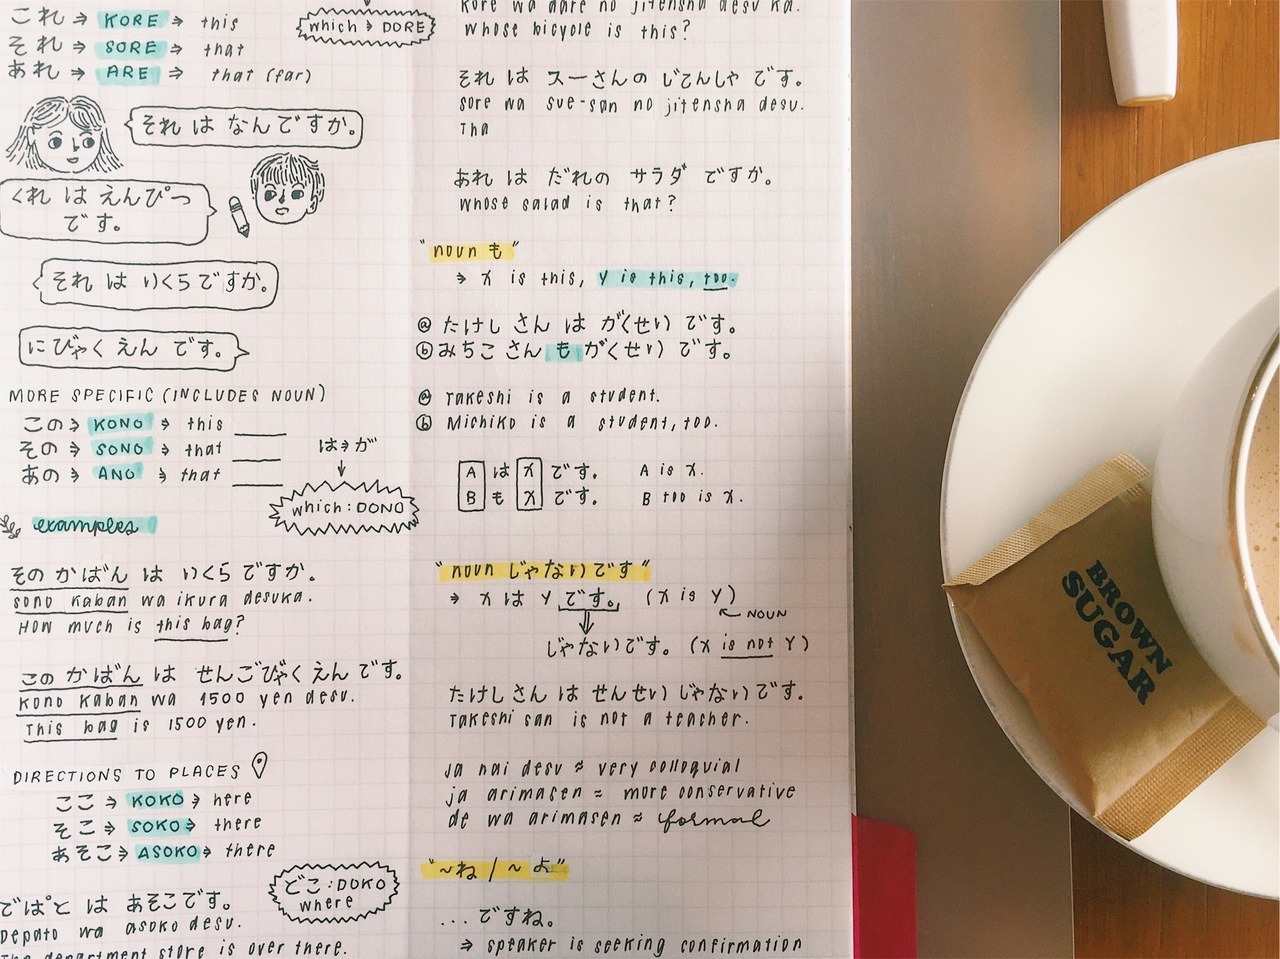 これ → KORE → this
それ → SORE → that
あれ → ARE → that (far)
which → DORE
それ は なんですか。
くれ は えんぴつ
です。
それ は いくらですか。
にびゃく えん です。
MORE SPECIFIC (INCLUDES NOUN)
この → KONO → this ____
その → SONO → that ____
あの → ANO → that ____
は→が
↓
which : DONO
examples
その かばん は いくら ですか。
sono kaban wa ikura desuka.
How much is this bag?
この かばん は せんごびゃく えん です。
kono kaban wa 1500 yen desu.
This bag is 1500 yen.
DIRECTIONS TO PLACES
ここ → KOKO → here
そこ → SOKO → there
あそこ → ASOKO → there
どこ : DOKO
where
でぱと は あそこです。
Depato wa asoko desu.
The department store is over there.
kore wa dare no jitensha desu ka.
whose bicycle is this?
それ は スーさんの じてんしゃ です。
sore wa sue-san no jitensha desu.
Tha
あれ は だれの サラダ ですか。
whose salad is that?
"noun も"
→ X is this, Y is this, too.
ⓐ たけし さん は がくせい です。
ⓑ みちこ さん も がくせい です。
ⓐ Takeshi is a student.
ⓑ Michiko is a student, too.
A は X です。 A is X.
B も X です。 B too is X.
"noun じゃないです"
→ X は Y です。 (X is Y)
NOUN
じゃないです。 (X is not Y)
たけしさん は せんせい じゃないです。
Takeshi san is not a teacher.
ja nai desu ≈ very colloquial
ja arimasen ≈ more conservative
de wa arimasen ≈ formal
"~ね / ~よ"
... ですね。
→ speaker is seeking confirmation
BROWN
SUGAR